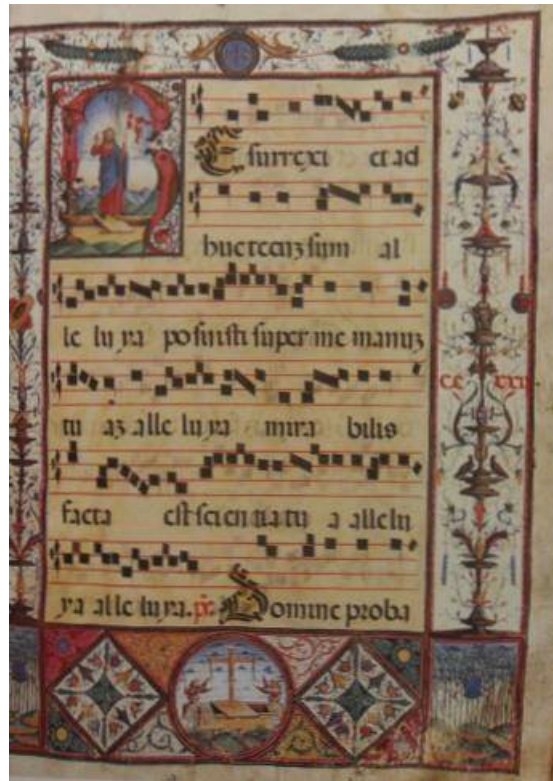 R Esurrexi et ad
huc tecuz sum al
le lu ya posuisti super me manuz
tu az alle lu ya mira bilis
facta est scien tia tu a allelu
ya al le lu ya. Domine proba